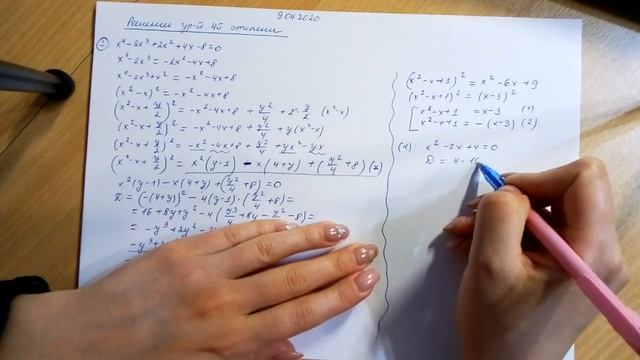 9.04.2020
Решение ур-й 4ой степени
① x⁴-2x³+2x²+4x-8=0
x⁴-2x³ = -2x²-4x+8
x⁴-2x³+x² = -x²-4x+8
(x²-x)² = -x²-4x+8
(x²-x+y/2)² = -x²-4x+8 + y²/4 + 2·y/2 (x²-x)
(x²-x+y/2)² = -x²-4x+8 + y²/4 + y(x²-x)
(x²-x+y/2)² = -x²-4x+8 + y²/4 + yx²-yx
(x²-x+y/2)² = x²(y-1) - x(4+y) + (y²/4+8) (*)
x²(y-1)-x(4+y)+(y²/4+8)=0
D = (-(4+y))² - 4(y-1)·(y²/4+8) =
= 16+8y+y² - 4(y³/4+8y-y²/4-8) =
= -y³+2y²
-y³+2
(x²-x+1)² = x²-6x+9
(x²-x+1)² = (x-3)²
[ x²-x+1 = x-3 (1)
x²-x+1 = -(x-3) (2)
(1): x²-2x+4=0
D = 4-16